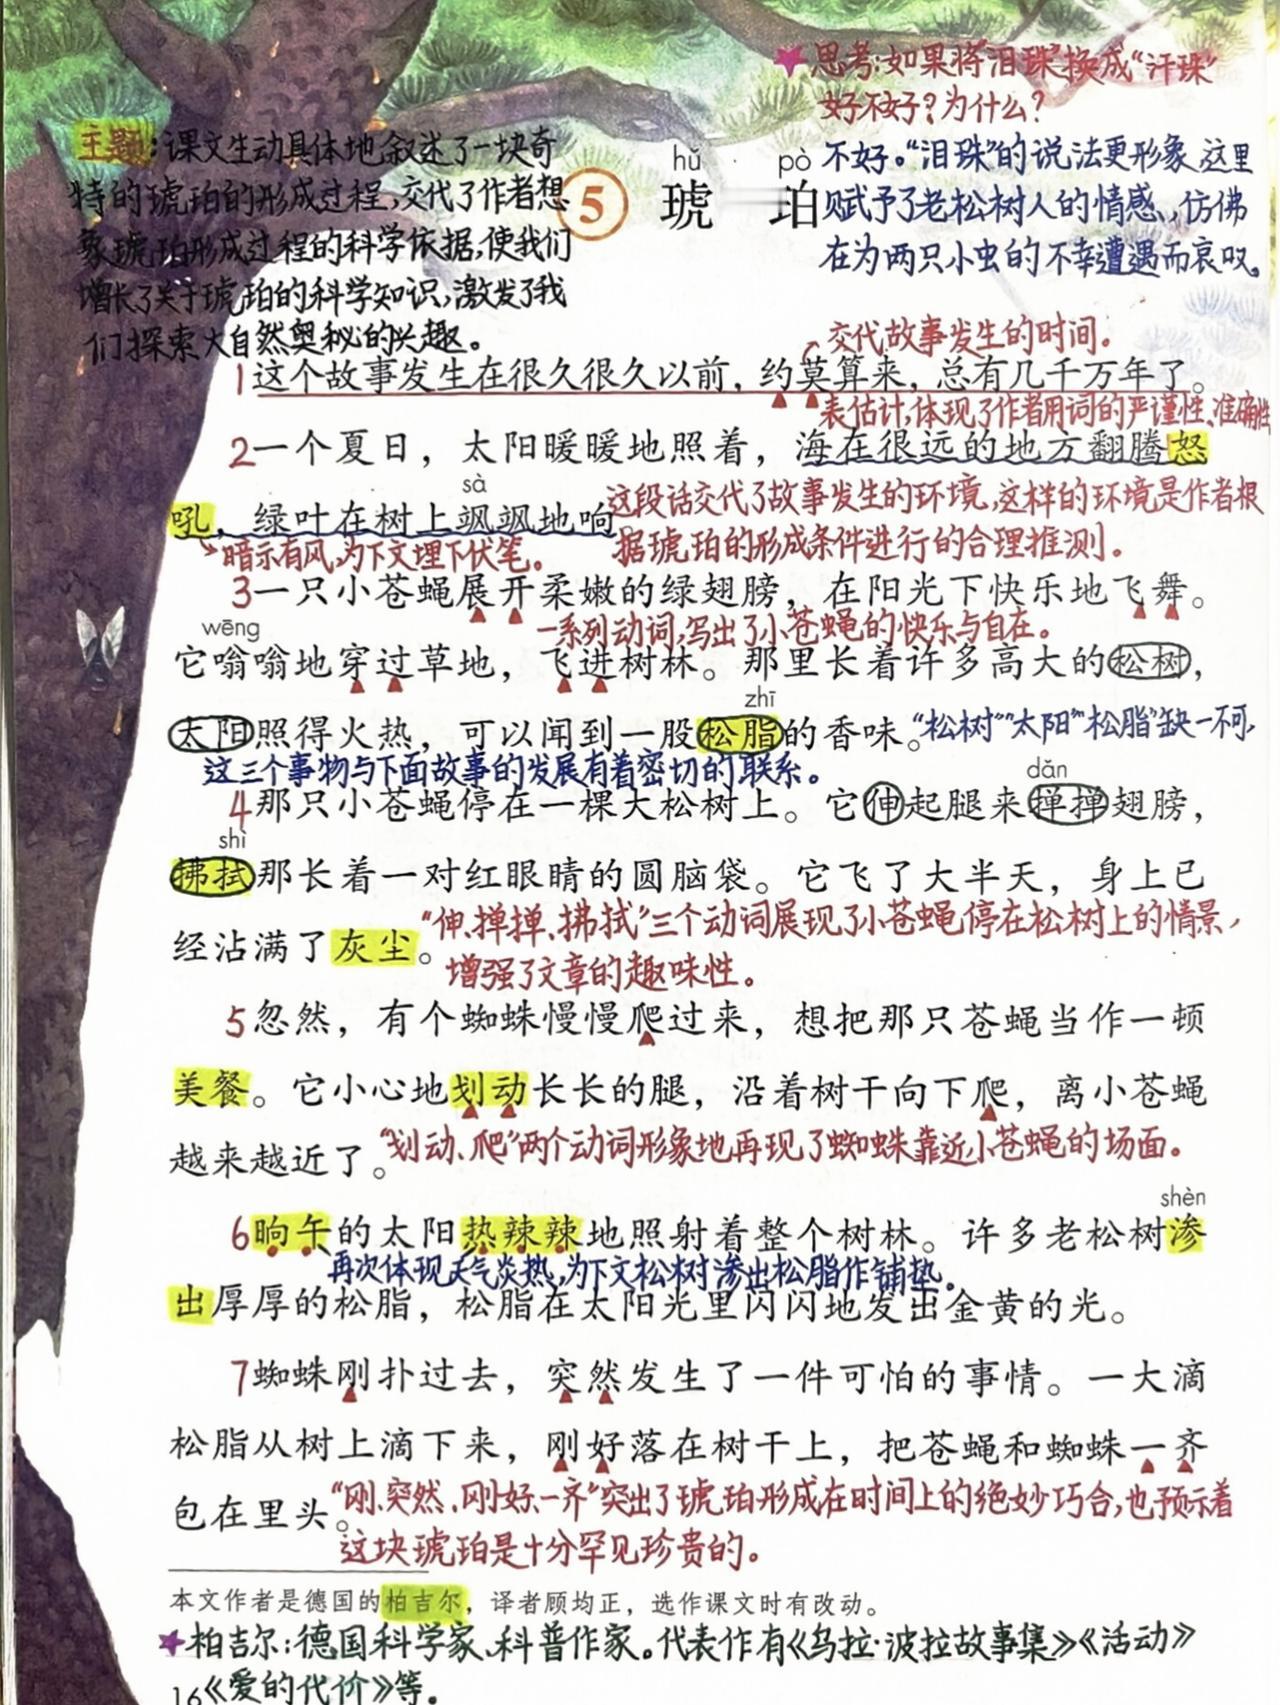 ★思考:如果将“泪珠”换成“汗珠”
好不好?为什么?
不好。“泪珠”的说法更形象,这里
赋予了老松树人的情感,仿佛
在为两只小虫的不幸遭遇而哀叹。
主题:课文生动具体地叙述了一块奇
特的琥珀的形成过程,交代了作者想
象琥珀形成过程的科学依据,使我们
增长了关于琥珀的科学知识,激发了我
们探索大自然奥秘的兴趣。
hǔ pò
5 琥珀
交代故事发生的时间.
1这个故事发生在很久很久以前，约莫算来，总有几千万年了。
表估计,体现了作者用词的严谨性、准确性
2一个夏日，太阳暖暖地照着，海在很远的地方翻腾怒
sà
吼，绿叶在树上飒飒地响。
这段话交代了故事发生的环境,这样的环境是作者根
据琥珀的形成条件进行的合理推测。
暗示有风,为下文埋下伏笔。
3一只小苍蝇展开柔嫩的绿翅膀，在阳光下快乐地飞舞。
一系列动词,写出了小苍蝇的快乐与自在。
wēng
它嗡嗡地穿过草地，飞进树林。那里长着许多高大的松树，
zhī
太阳照得火热，可以闻到一股松脂的香味。
“松树”“太阳”“松脂”缺一不可,
这三个事物与下面故事的发展有着密切的联系。
dǎn
4那只小苍蝇停在一棵大松树上。它伸起腿来掸掸翅膀，
shì
拂拭那长着一对红眼睛的圆脑袋。它飞了大半天，身上已
经沾满了灰尘。
“伸、掸掸、拂拭”三个动词展现了小苍蝇停在松树上的情景,
增强了文章的趣味性。
5忽然，有个蜘蛛慢慢爬过来，想把那只苍蝇当作一顿
美餐。它小心地划动长长的腿，沿着树干向下爬，离小苍蝇
越来越近了。
“划动、爬”两个动词形象地再现了蜘蛛靠近小苍蝇的场面。
shèn
6晌午的太阳热辣辣地照射着整个树林。许多老松树渗
再次体现天气炎热,为下文松树渗出松脂作铺垫。
出厚厚的松脂，松脂在太阳光里闪闪地发出金黄的光。
7蜘蛛刚扑过去，突然发生了一件可怕的事情。一大滴
松脂从树上滴下来，刚好落在树干上，把苍蝇和蜘蛛一齐
包在里头。
“刚、突然、刚好、一齐”突出了琥珀形成在时间上的绝妙巧合,也预示着
这块琥珀是十分罕见珍贵的。
本文作者是德国的柏吉尔，译者顾均正，选作课文时有改动。
★柏吉尔:德国科学家、科普作家。代表作有《乌拉·波拉故事集》《活动》
16《爱的代价》等.